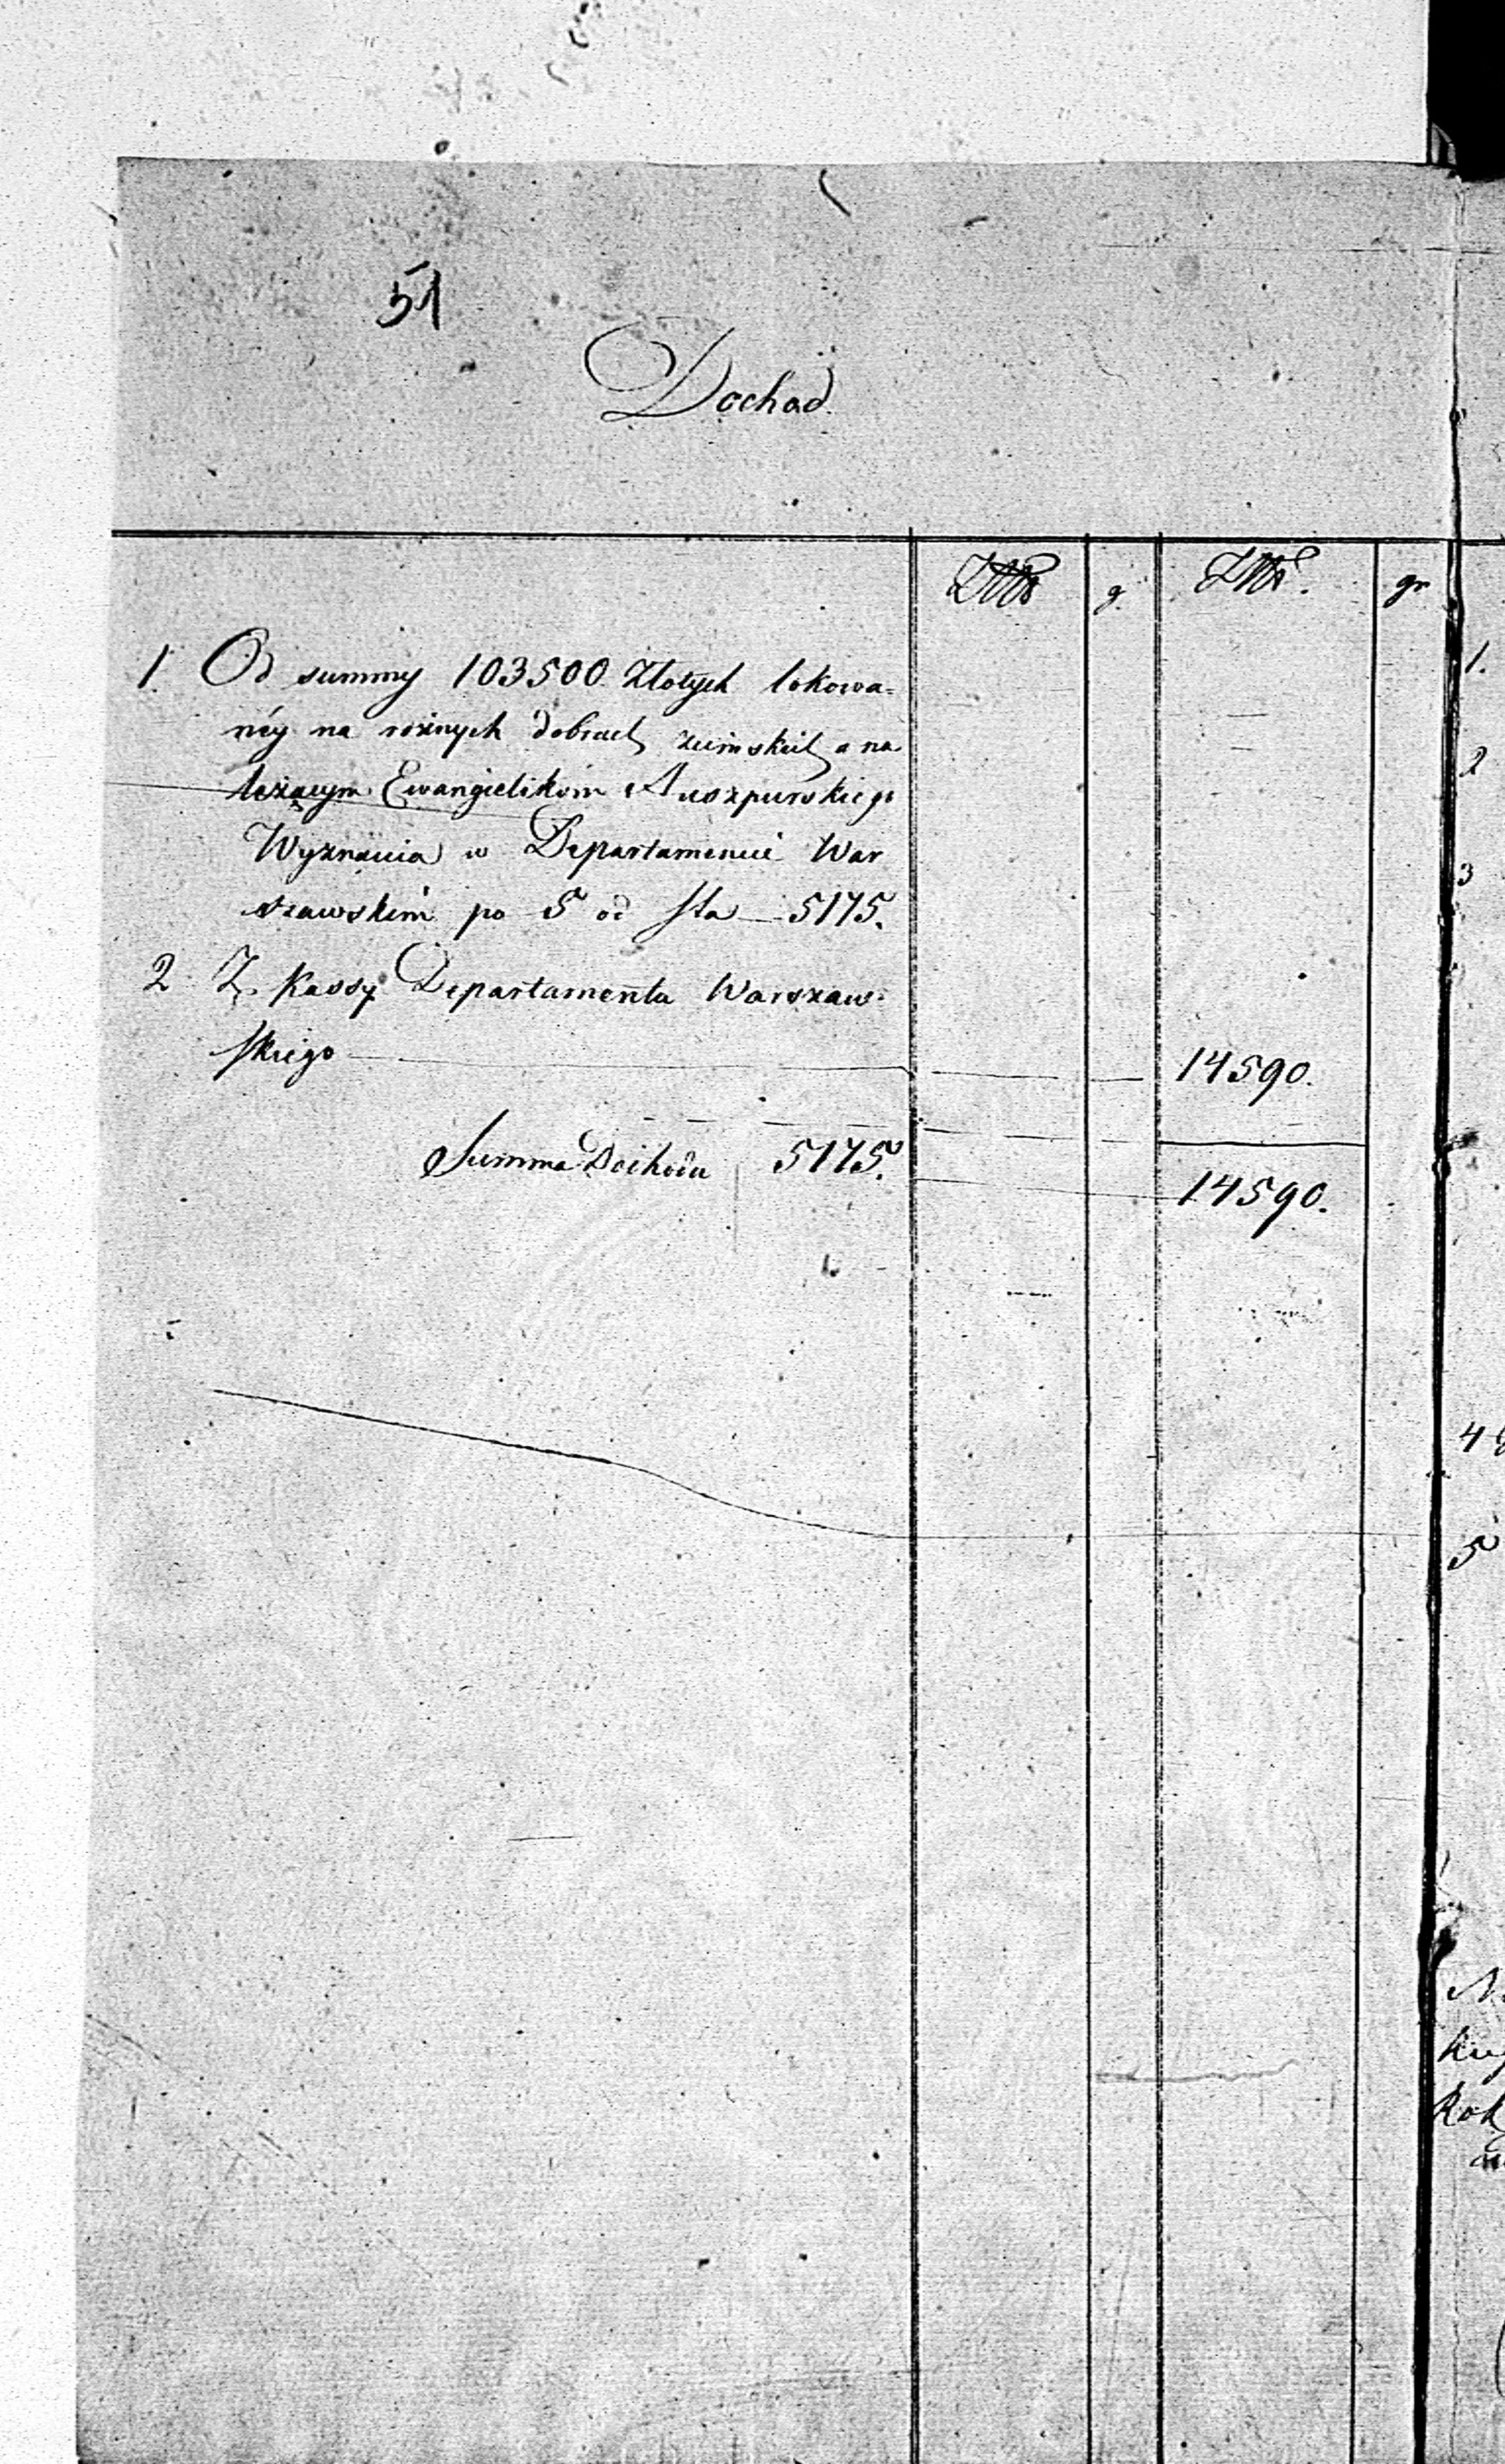 51
Dochod.
Złł. g. Złł. gr
1. Od summy 103500. Złotych lokowa=
néy na rożnych dobrach ziemskich a na
leżącym Ewangielikom Auszpurskiego
Wyznania w Departamencie War
szawskim po 5 od sta 5175.
2 Z Kassy Departamentu Warszaw=
skiego 14590.
Summa Dochodu 5175. 14590.
1.
2
3
4
5